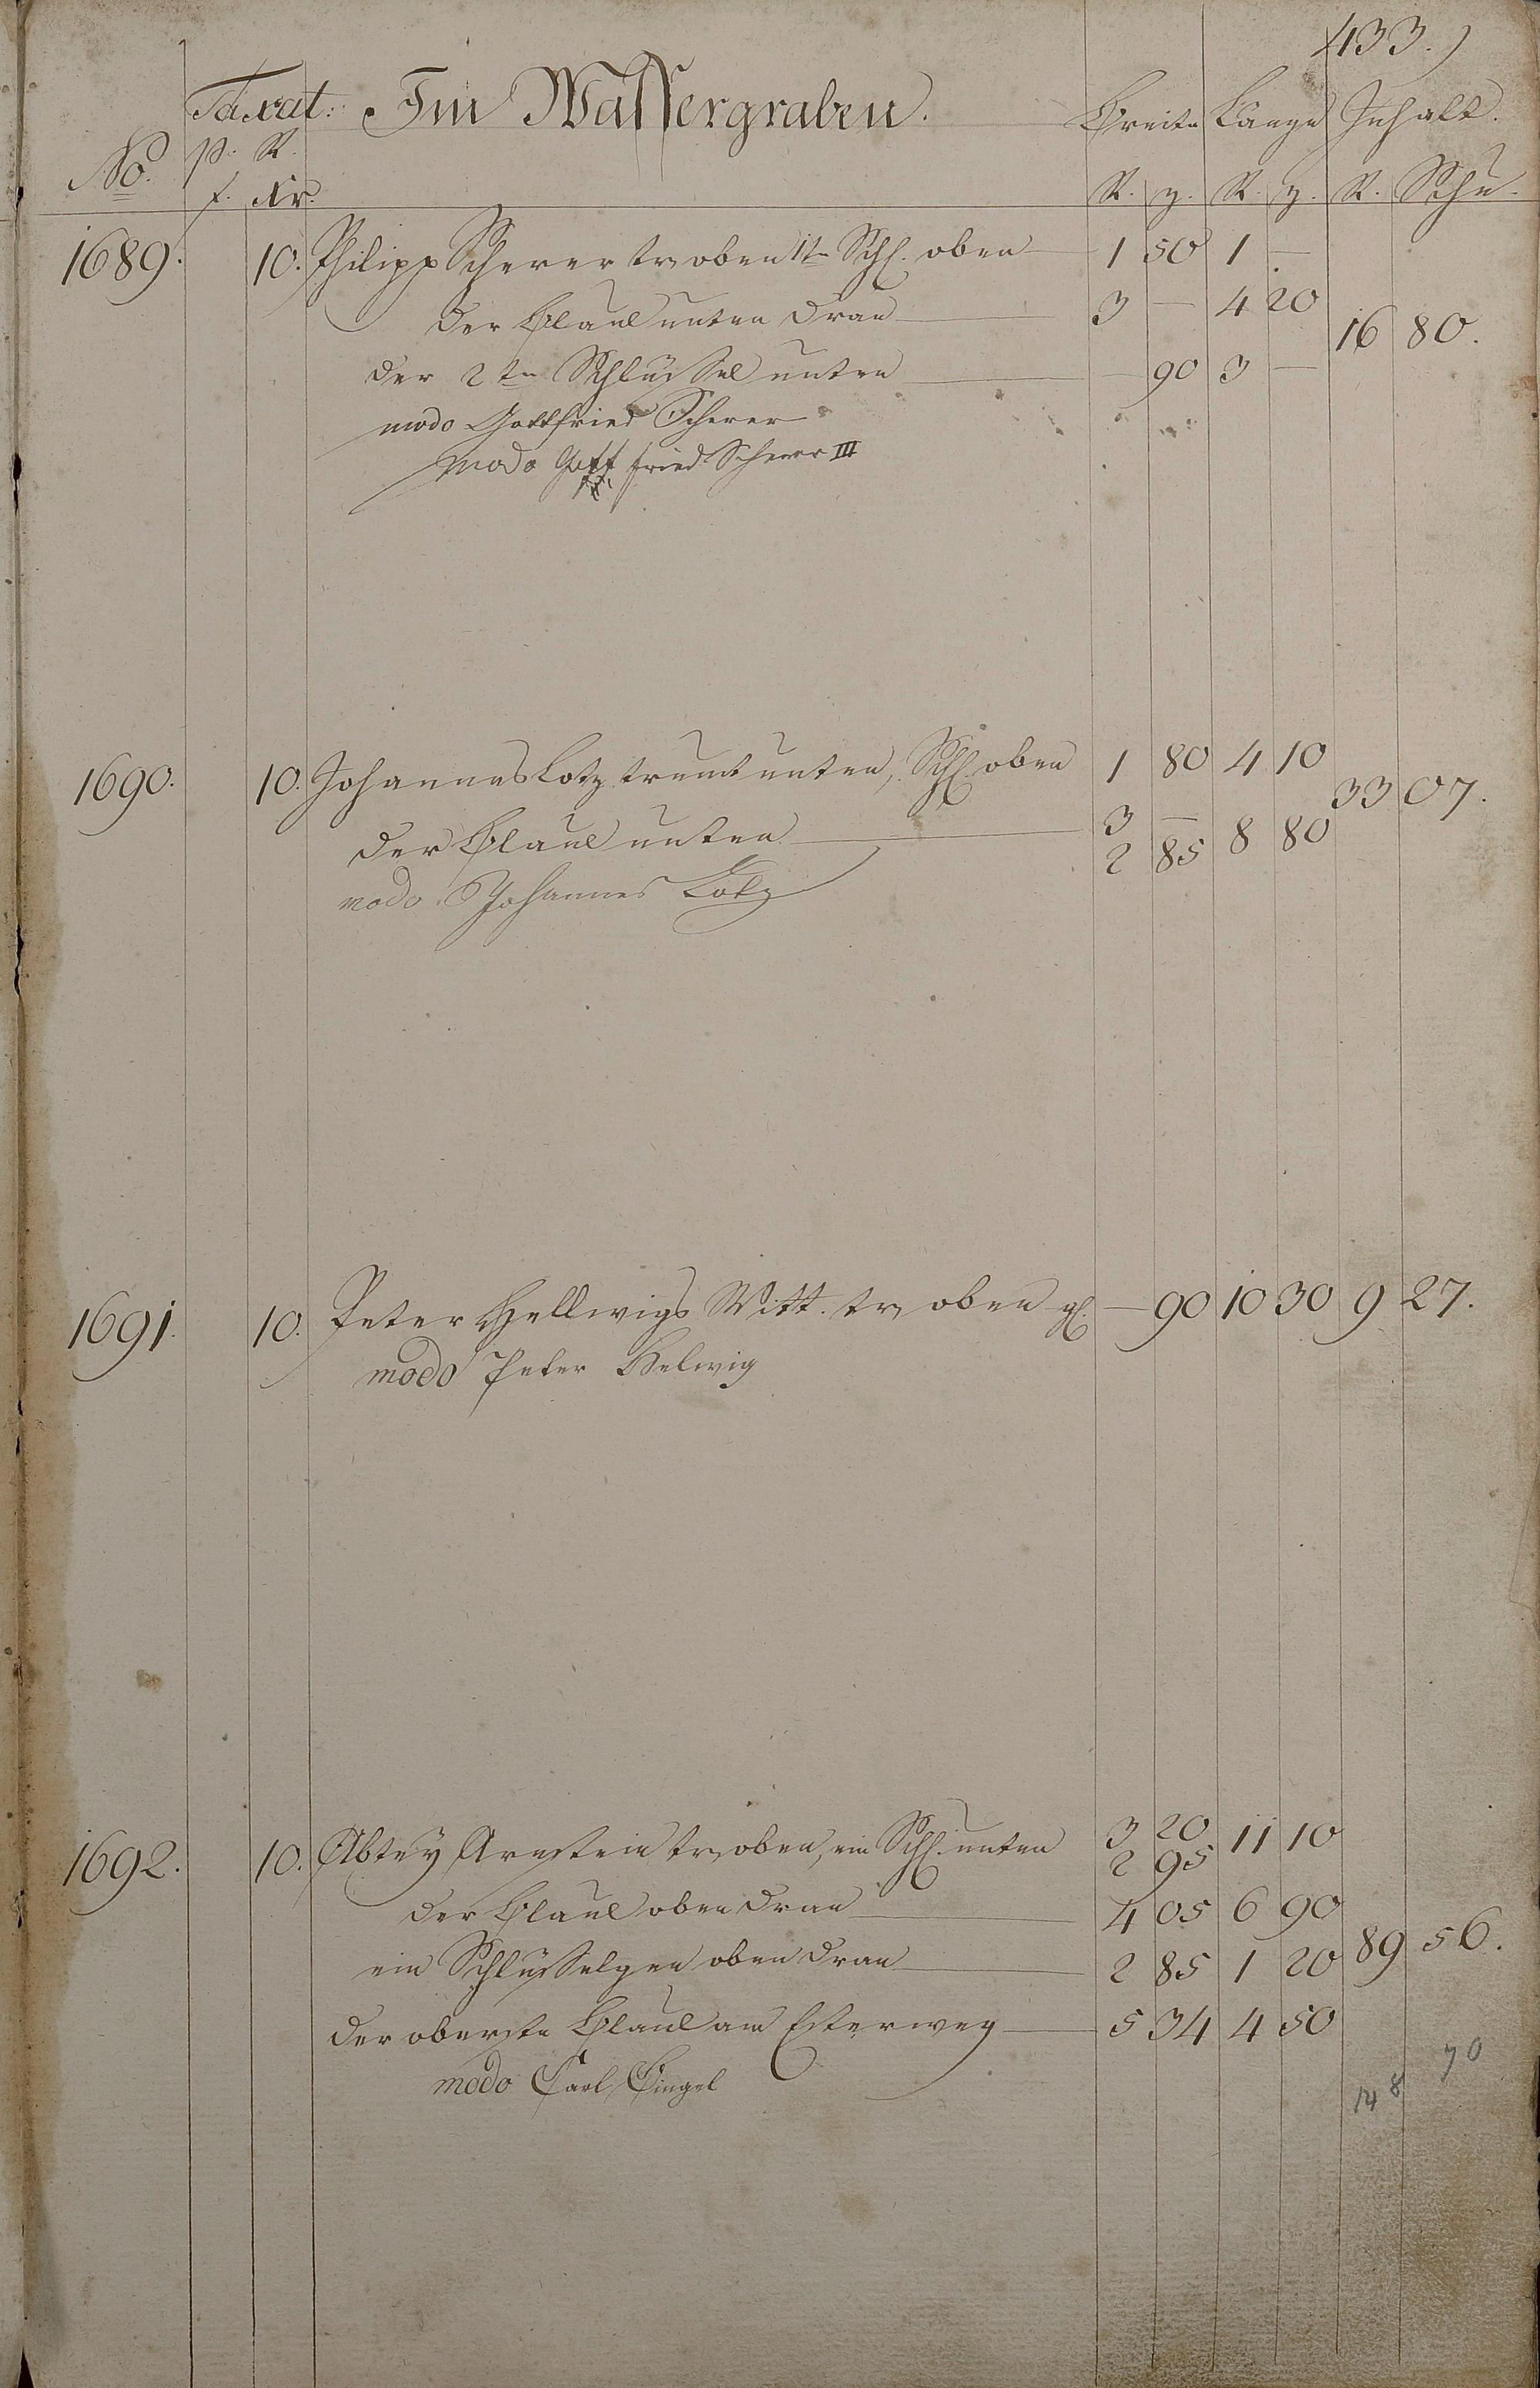 433.)
Taxat: Im Wassergraben. Breite Länge Inhalt.
No. p. R.
f. Xr. R. z. R. z. R. Schu.
1689. 10. Philipp Scherer tr. oben 1te Schl. oben 1 50 1 —
der Blaul unten dran 3 — 4 20 16 80.
der 2te Schlüssel unten — 90 3 —
modo Gottfried Scherer
modo Gottfried Scherer III
1690. 10. Johannes Lotz trumt unten, Schl. oben 1 80 4 10 33 07.
der Blaul unten 3 —
2 85 8 80
modo Johannes Lotz
1691. 10. Peter Hellwigs Witt. tr. oben gl. — 90 10 30 9 27.
modo Peter Helwig
1692. 10. Abtey Arnstein tr. oben, ein Schl. unten 3 20
2 95 11 10
der Blaul oben dran 4 05 6 90
ein Schlüsselgen oben dran 2 85 1 20 89 56.
der oberste Blaul am Esterweg 5 34 4 50
modo Carl Bingel
148 70